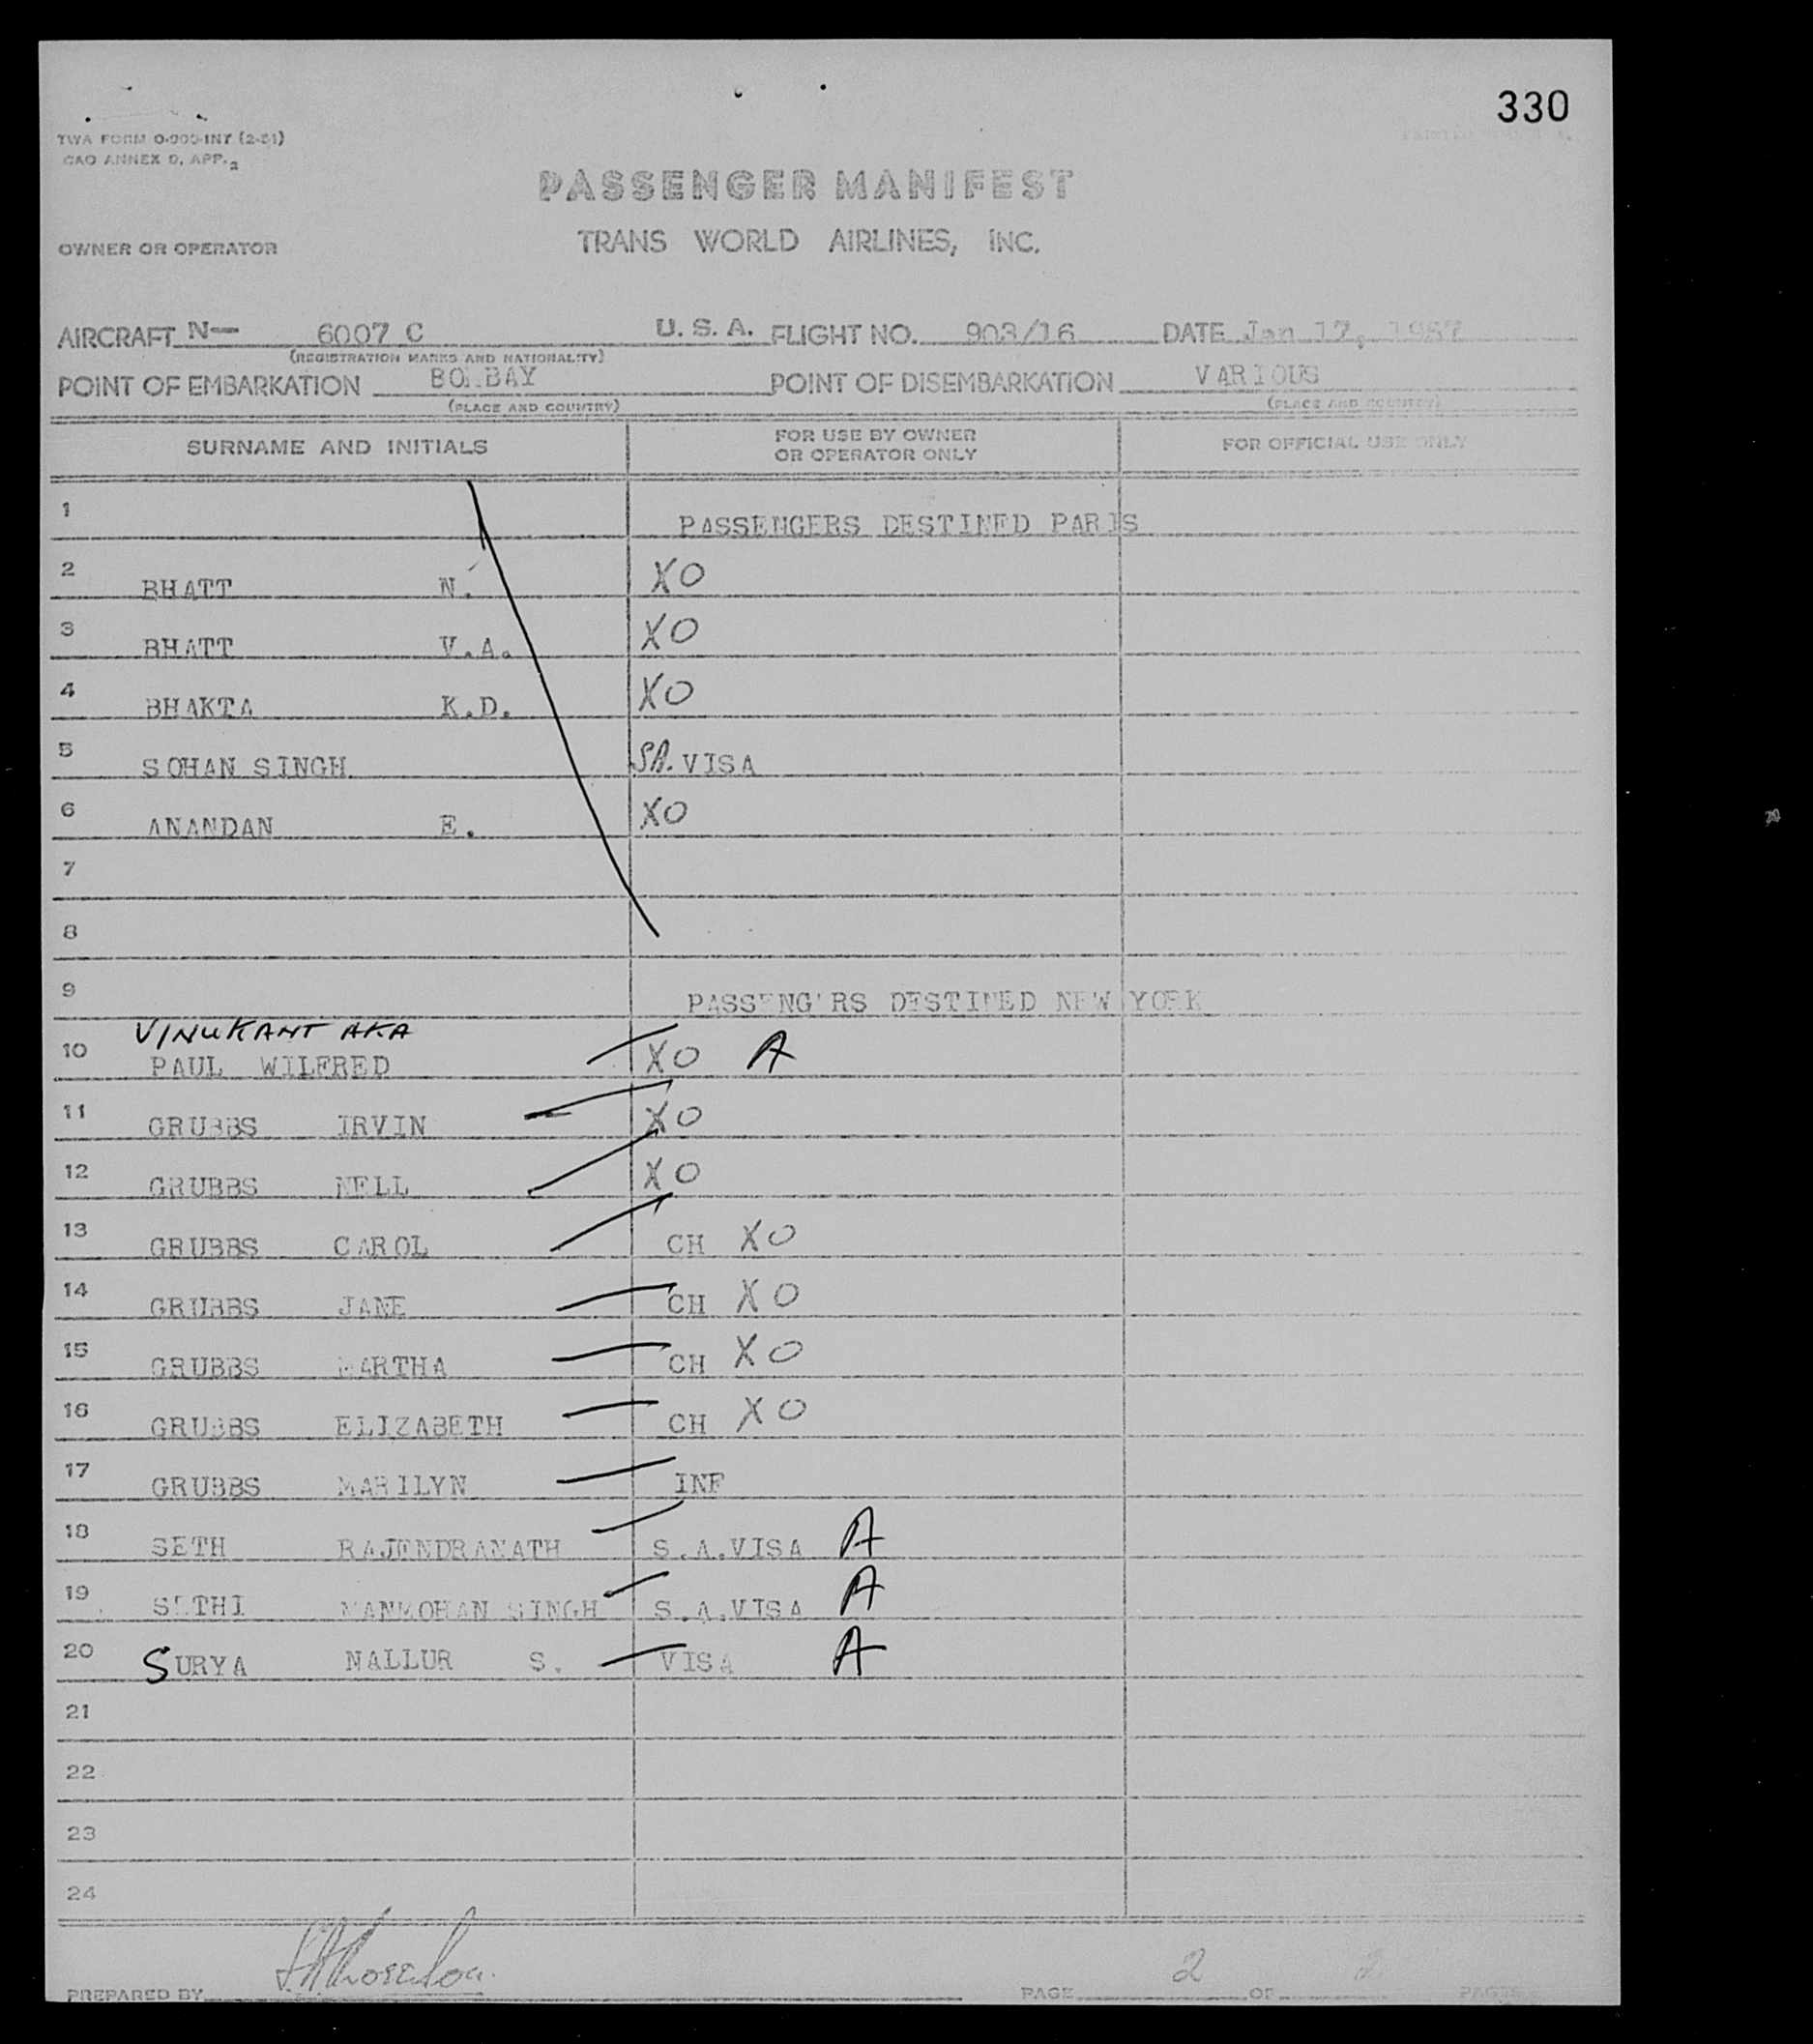 330
TWA FORM 0-900-INT (2-51)
CAO ANNEX 9, APP. 2
PASSENGER MANIFEST
OWNER OR OPERATOR TRANS WORLD AIRLINES, INC.
AIRCRAFT N— 6007 C U. S. A. FLIGHT NO. 903/16 DATE Jan 17, 1957
(REGISTRATION MARKS AND NATIONALITY)
POINT OF EMBARKATION BOMBAY POINT OF DISEMBARKATION VARIOUS
(PLACE AND COUNTRY) (PLACE AND COUNTRY)
SURNAME AND INITIALS FOR USE BY OWNER OR OPERATOR ONLY FOR OFFICIAL USE ONLY
1 PASSENGERS DESTINED PARIS
2 BHATT N. XO
3 BHATT V.A. XO
4 BHAKTA K.D. XO
5 SOHAN SINGH SA. VISA
6 ANANDAN E. XO
7
8
9 PASSENGERS DESTINED NEW YORK
VINUKANT AKA
10 PAUL WILFRED XO A
11 GRUBBS IRVIN XO
12 GRUBBS NELL XO
13 GRUBBS CAROL CH XO
14 GRUBBS JANE CH XO
15 GRUBBS MARTHA CH XO
16 GRUBBS ELIZABETH CH XO
17 GRUBBS MARILYN INF
18 SETH RAJENDRANATH S.A.VISA A
19 SETHI MANMOHAN SINGH S.A.VISA A
20 SURYA NALLUR S. VISA A
21
22
23
24
PREPARED BY PAGE 2 OF 2 PAGES